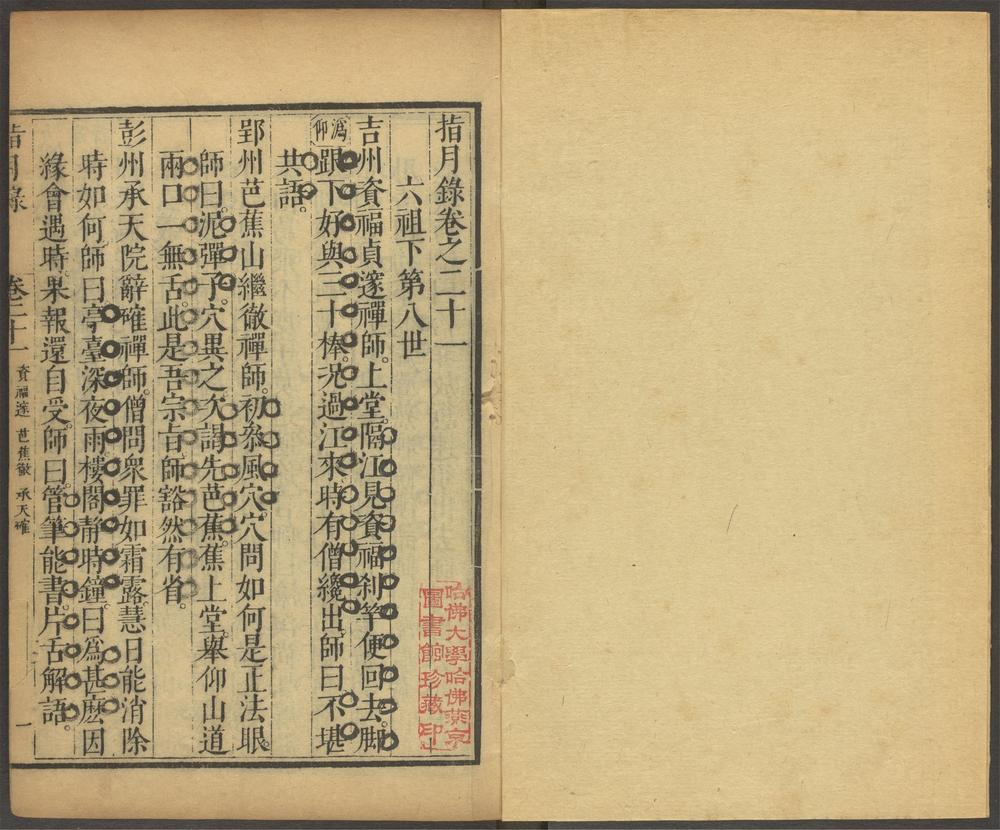 指月錄卷之二十一
六祖下第八世
吉州資福貞邃禪師。上堂。隔江見資福剎竿便回去。脚
跟下好與三十棒。况過江來時有僧纔出。師曰不堪
溈仰
共語。
郢州芭蕉山繼徹禪師。初叅風穴。穴問如何是正法眼。
師曰。泥彈子。穴異之。次謁先芭蕉。蕉上堂。舉仰山道
兩口一無舌。此是吾宗旨。師豁然有省。
彭州承天院辭確禪師。僧問衆罪如霜露。慧日能消除
時如何。師曰亭臺深夜雨。樓閣靜時鐘。曰爲甚麼因
緣會遇時。果報還自受。師曰。管筆能書。片舌解語。
指月錄
卷二十一
資福邃 芭蕉徹 承天確
一
哈佛大學哈佛燕京
圖書館珍藏印